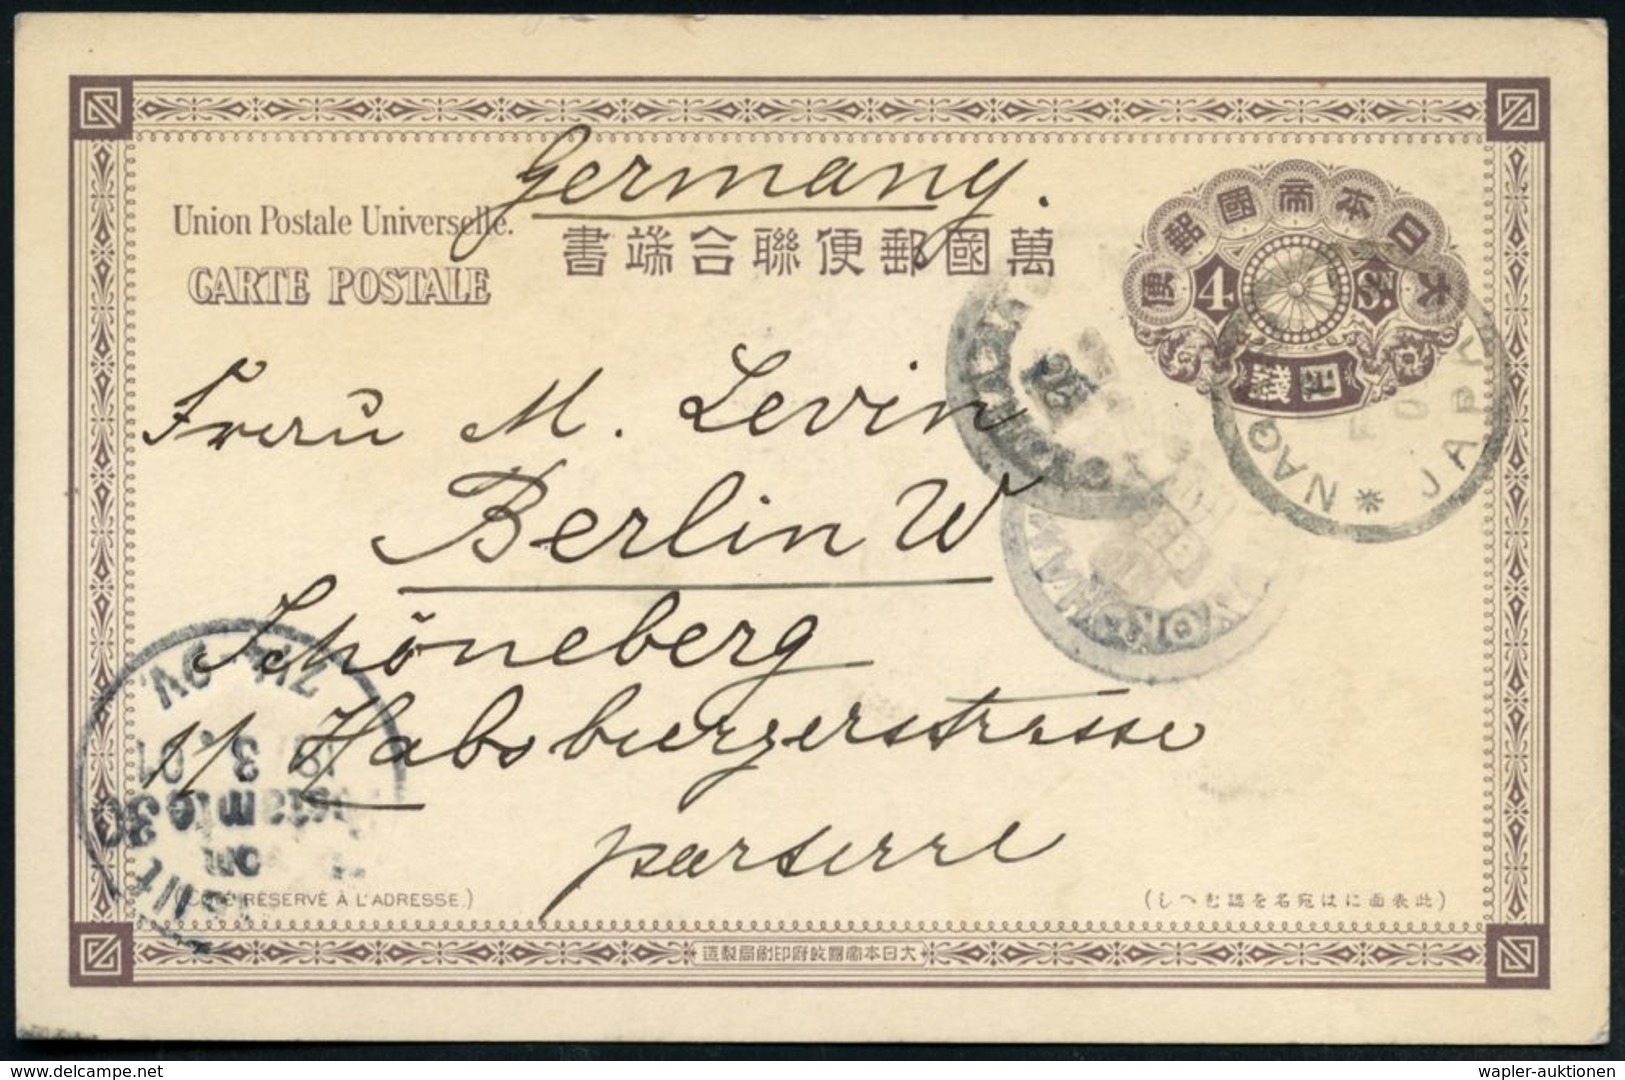 Germany.
Union Postale Universelle.
CARTE POSTALE
書端合聯便郵國萬
便郵國帝本日大
4 Sn.
錢四
Frau M. Levin
Berlin W
Schöneberg
11 Habsburgerstrasse
parterre
YOKOHAMA
YOKOHAMA
JAPAN
3. 01
7¼
(CÔTÉ RÉSERVÉ À L'ADRESSE.)
(しへむ認を名宛はに面表此)
造製局刷印府政國帝本日大
wapler-auktionen